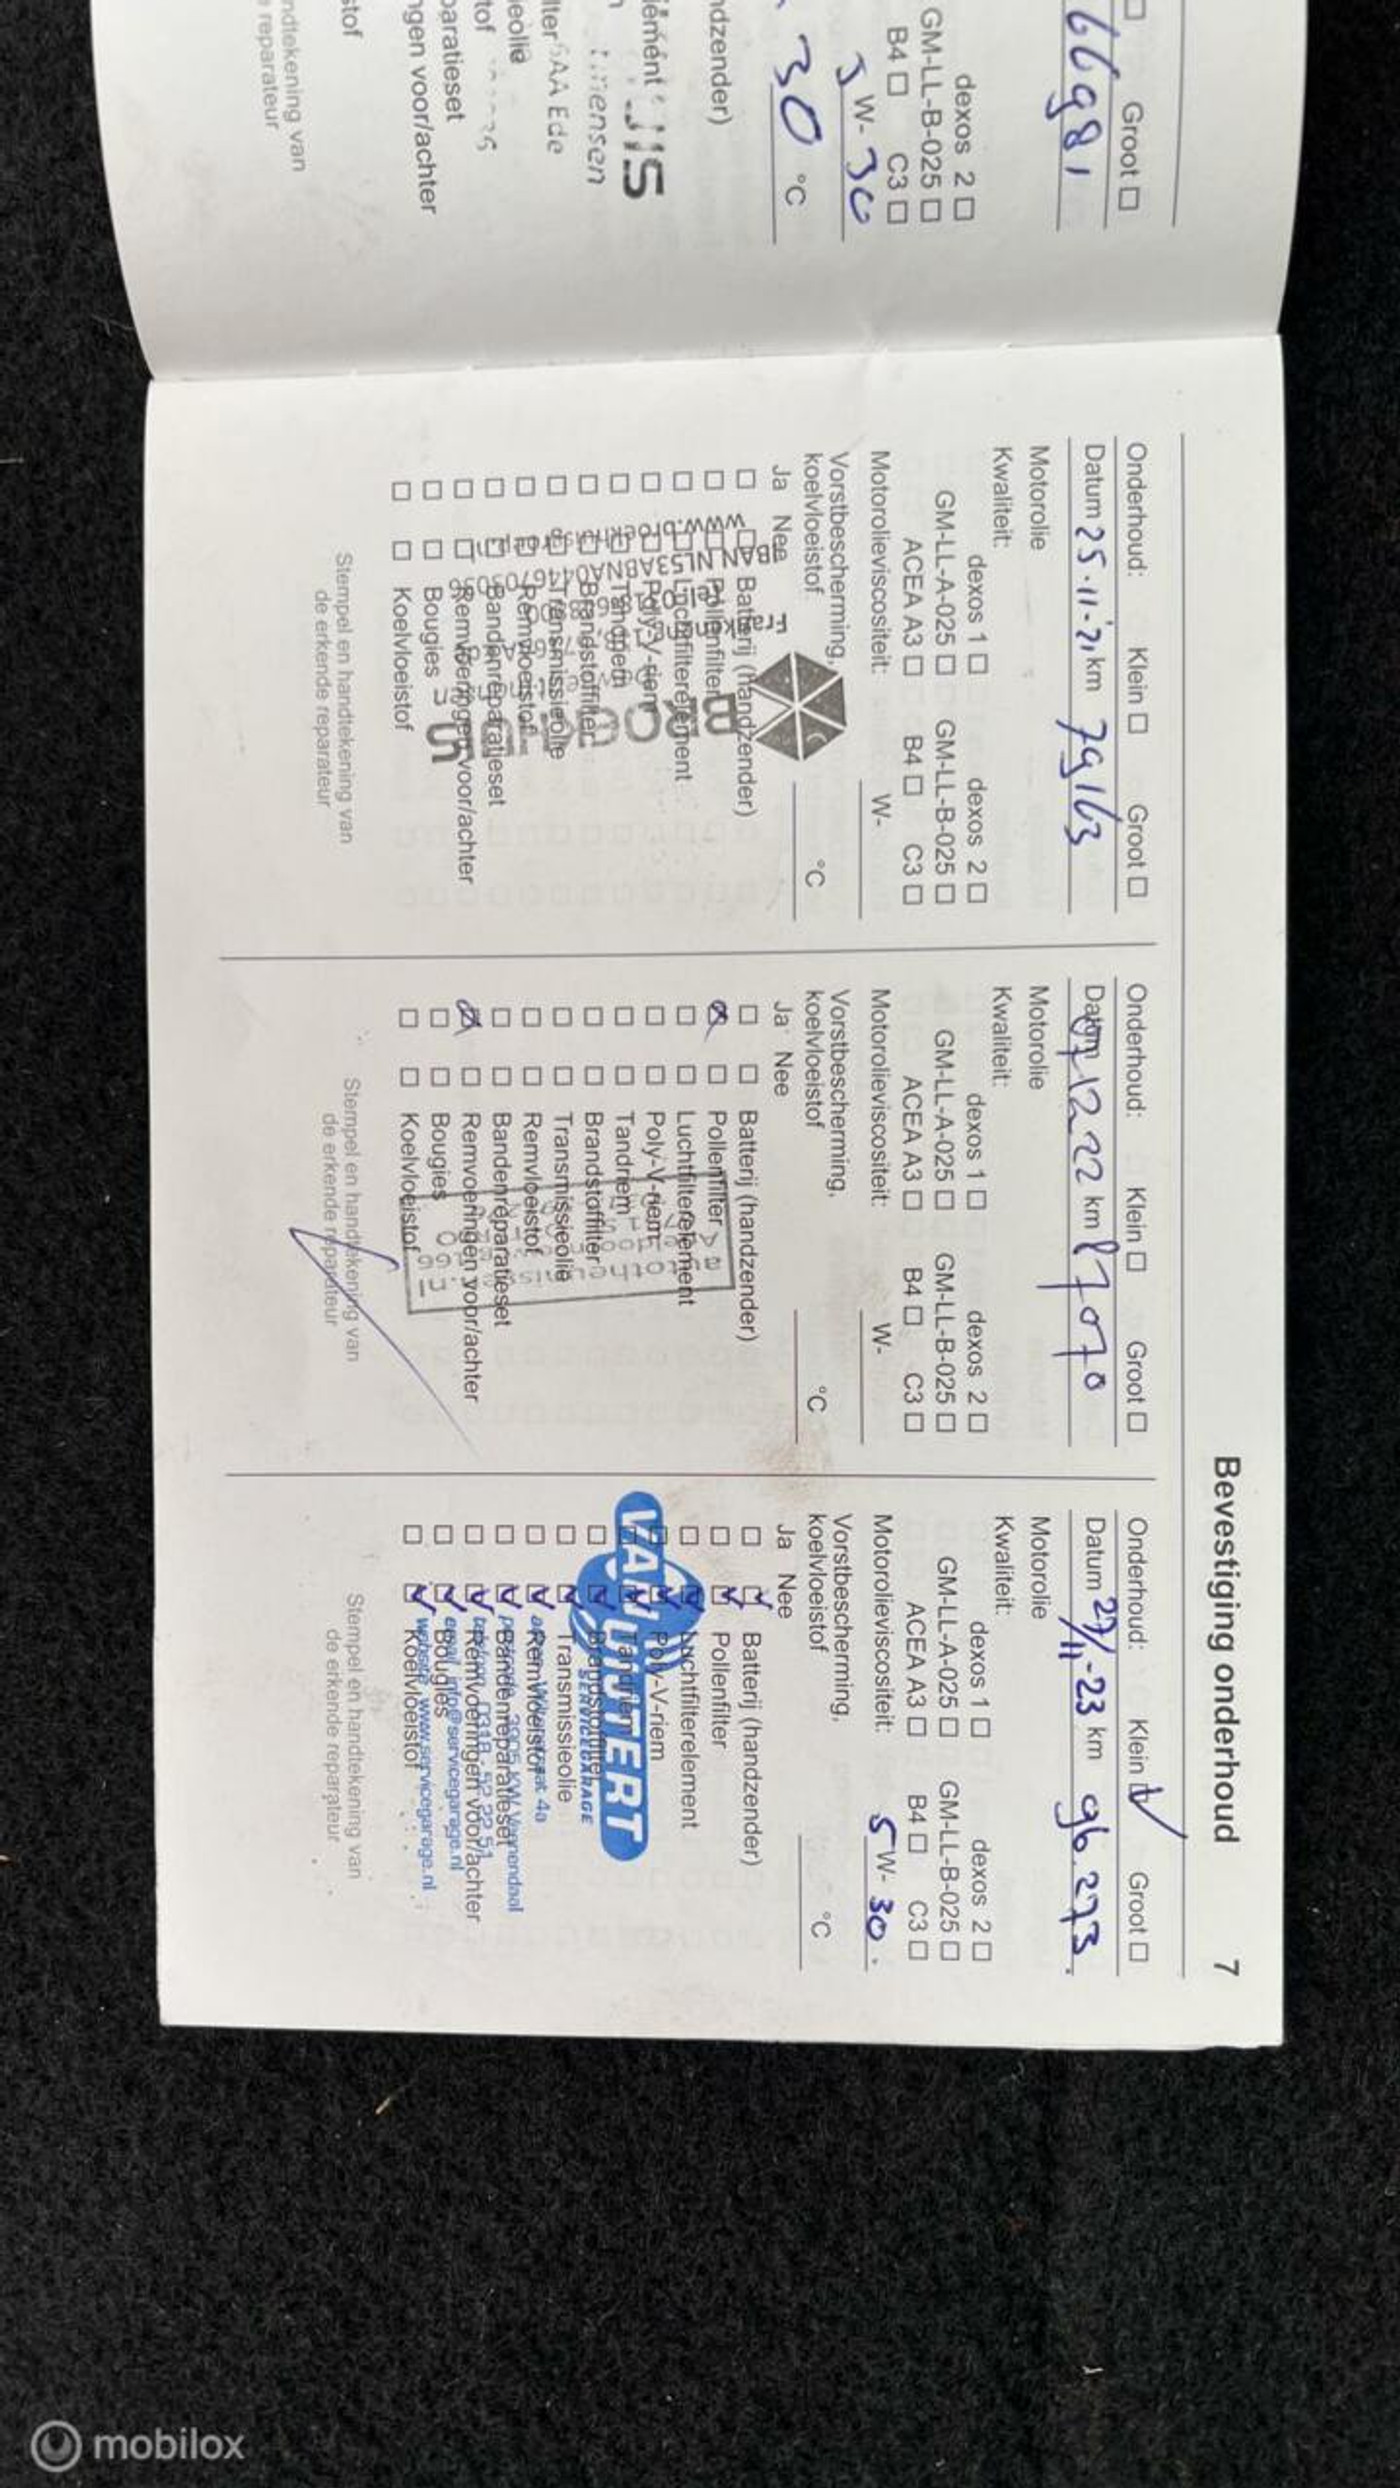 Groot □
66981
dexos 2 □
GM-LL-B-025 □
B4 □ C3 □
5 W- 30
30 °C
ndzender)
ement
mensen
lter SAA Ede
eolie
tof
paratieset
ngen voor/achter
stof
ndtekening van
reparateur
Bevestiging onderhoud 7
Onderhoud: Klein □ Groot □
Datum 25-11-21 km 79163
Motorolie
Kwaliteit:
dexos 1 □ dexos 2 □
GM-LL-A-025 □ GM-LL-B-025 □
ACEA A3 □ B4 □ C3 □
Motorolieviscositeit: W-
Vorstbescherming,
koelvloeistof °C
Ja Nee
□ □ Batterij (handzender)
□ □ Pollenfilter
□ □ Luchtfilterelement
□ □ Poly-V-riem
□ □ Tandriem
□ □ Brandstoffilter
□ □ Transmissieolie
□ □ Remvloeistof
□ □ Bandenreparatieset
□ □ Remvoeringen voor/achter
□ □ Bougies
□ □ Koelvloeistof
Stempel en handtekening van
de erkende reparateur
Onderhoud: Klein □ Groot □
Datum 07 12 22 km 87070
Motorolie
Kwaliteit:
dexos 1 □ dexos 2 □
GM-LL-A-025 □ GM-LL-B-025 □
ACEA A3 □ B4 □ C3 □
Motorolieviscositeit: W-
Vorstbescherming,
koelvloeistof °C
Ja Nee
□ □ Batterij (handzender)
☒ □ Pollenfilter
□ □ Luchtfilterelement
□ □ Poly-V-riem
□ □ Tandriem
□ □ Brandstoffilter
□ □ Transmissieolie
□ □ Remvloeistof
□ □ Bandenreparatieset
☒ □ Remvoeringen voor/achter
□ □ Bougies
□ □ Koelvloeistof
Stempel en handtekening van
de erkende reparateur
Onderhoud: Klein ☑ Groot □
Datum 27/11-23 km 96.273.
Motorolie
Kwaliteit:
dexos 1 □ dexos 2 □
GM-LL-A-025 □ GM-LL-B-025 □
ACEA A3 □ B4 □ C3 □
Motorolieviscositeit: 5 W- 30.
Vorstbescherming,
koelvloeistof °C
Ja Nee
□ ☑ Batterij (handzender)
□ ☑ Pollenfilter
□ ☑ Luchtfilterelement
□ ☑ Poly-V-riem
□ ☑ Tandriem
□ ☑ Brandstoffilter
□ ☑ Transmissieolie
□ ☑ Remvloeistof
□ ☑ Bandenreparatieset
□ ☑ Remvoeringen voor/achter
□ ☑ Bougies
□ ☑ Koelvloeistof
VAN UIJTERT
SERVICEGARAGE
info@servicegarage.nl
www.servicegarage.nl
Stempel en handtekening van
de erkende reparateur
mobilox